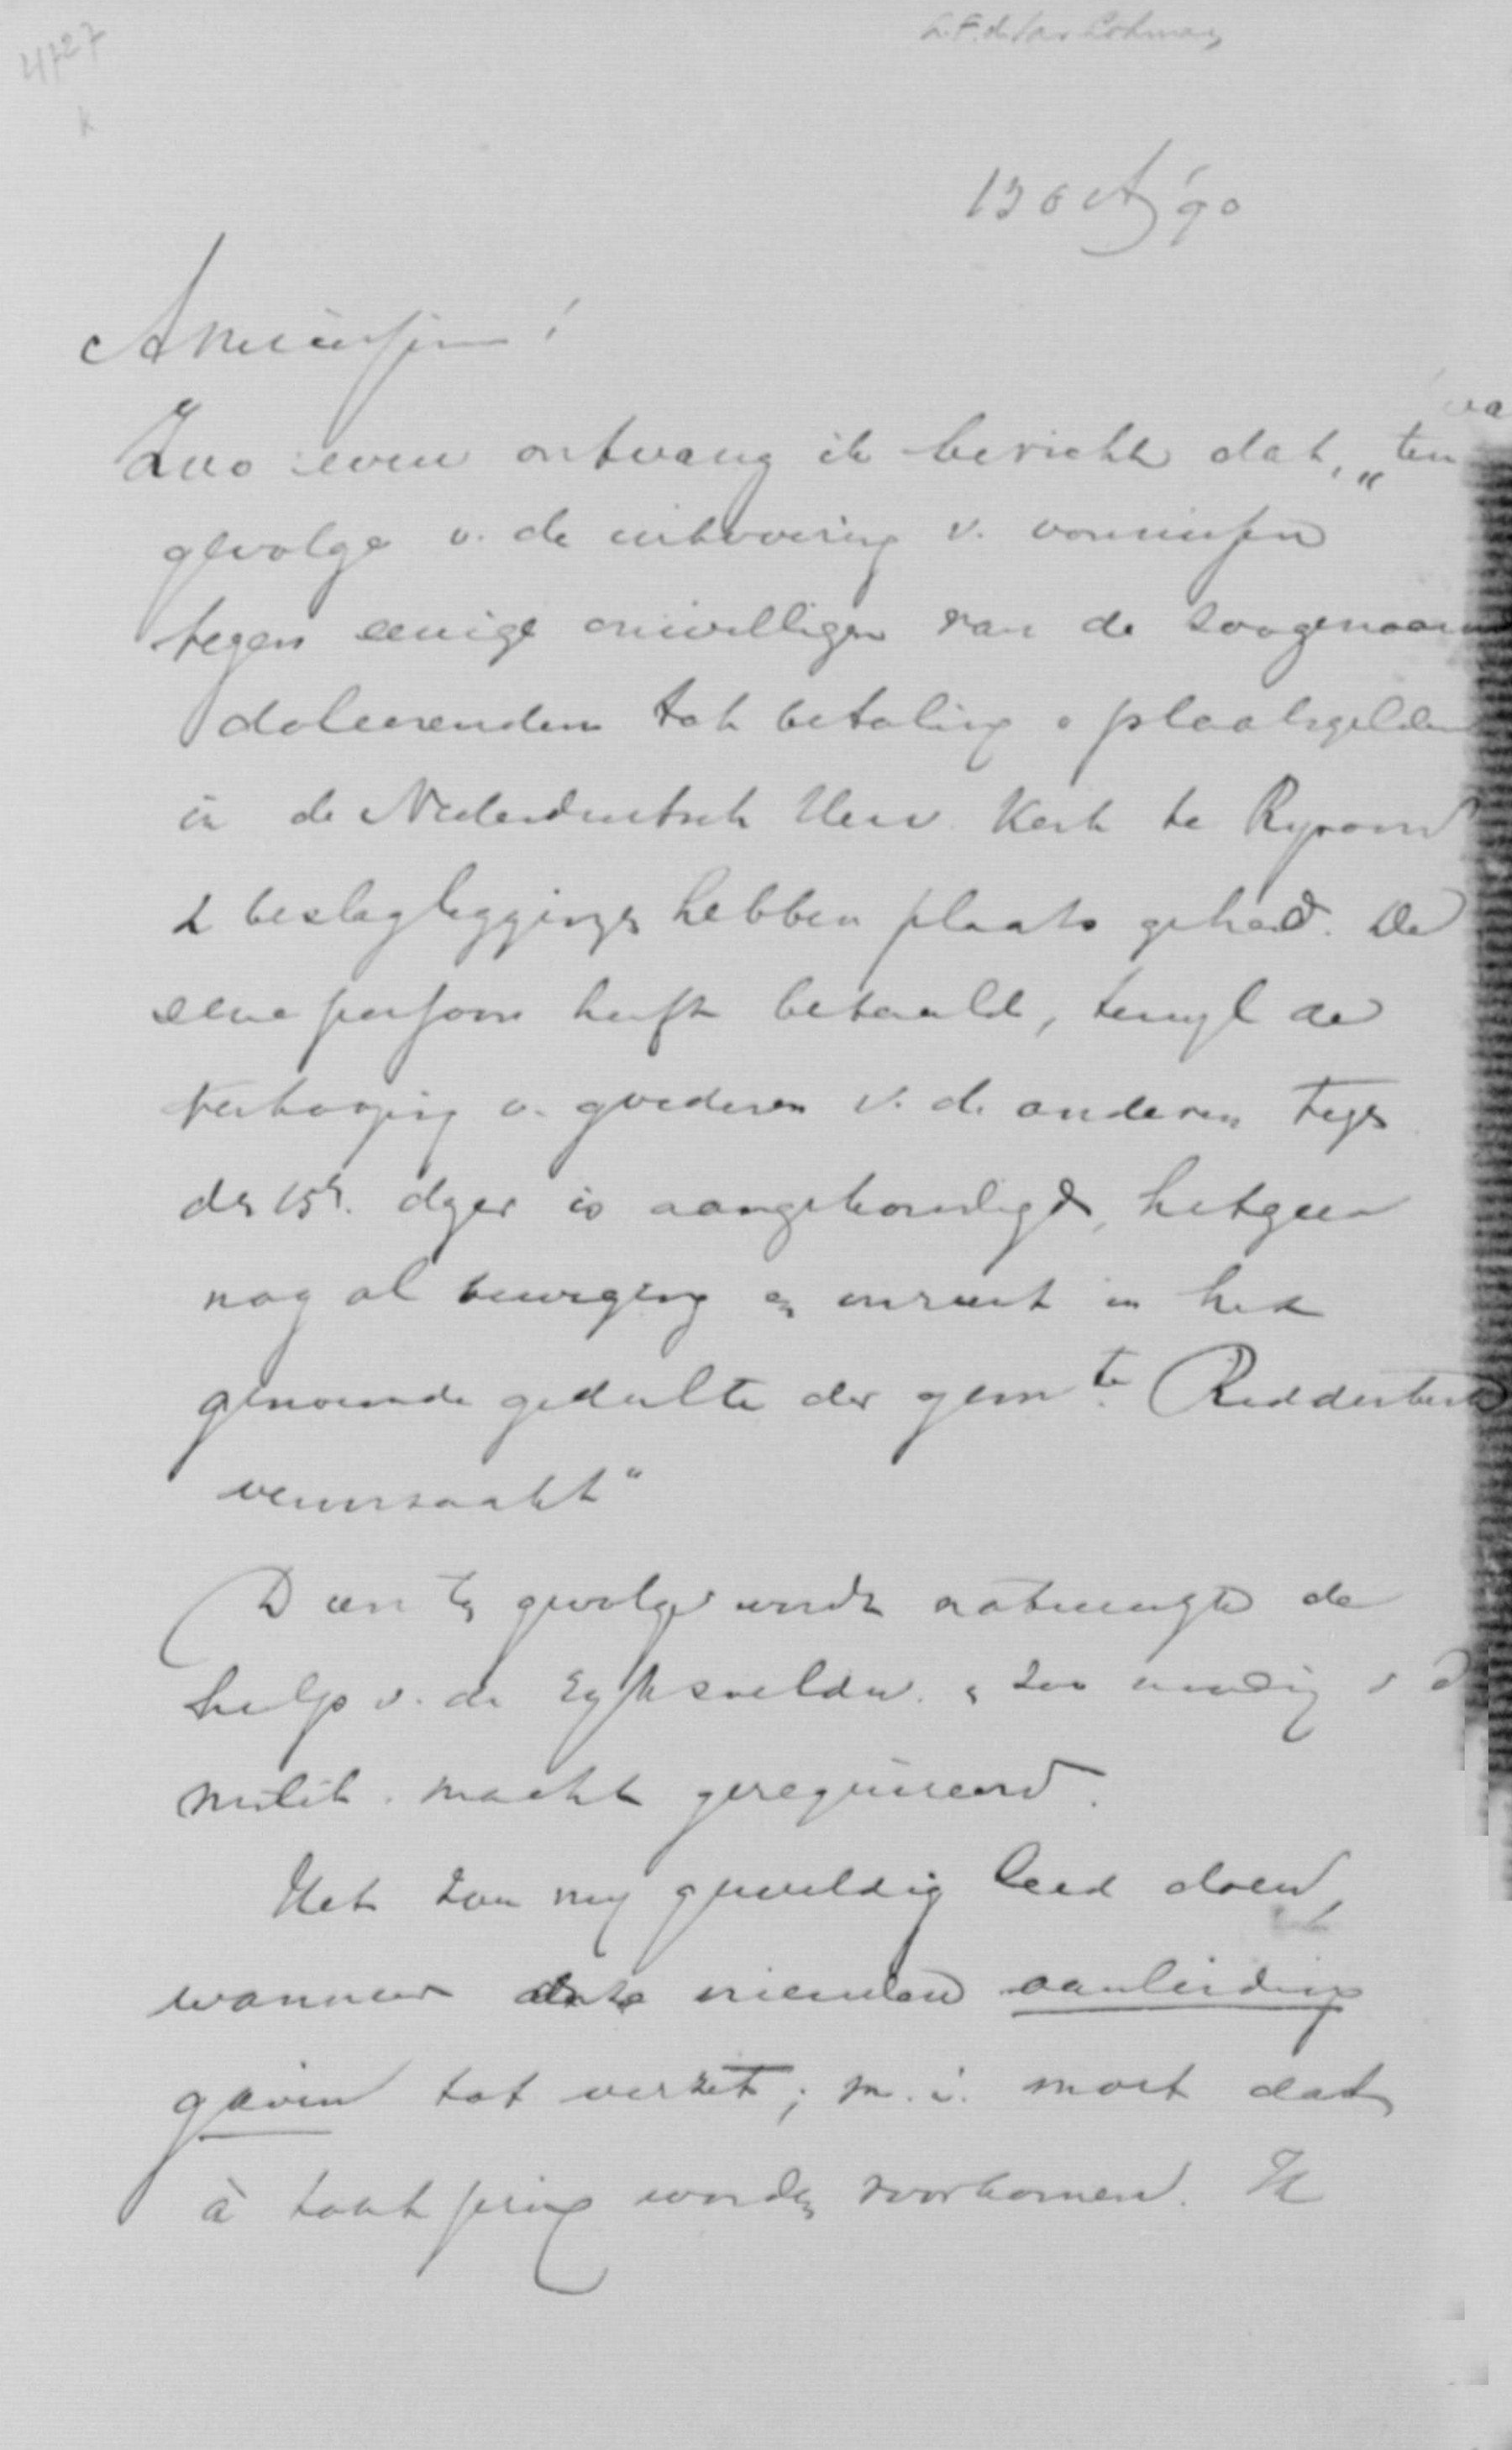 4727
k
A.F. de Sav. Lohman
13 Oct '90
Amicissime!
Zoo even ontvang ik bericht dat, „ten
gevolge v. de uitvoering v. vonnissen
tegen eenige onwilligen van de zoogenaam
doleerenden tot betaling v plaatsgelden
in de Nederduitsch Herv. Kerk te Rysoord
2 beslagleggings hebben plaats gehad. De
eene persoon heeft betaald, terwyl de
verkooping v. goederen v. de anderen tegs
den 15n. dezer is aangekondigd, hetgeen
nog al beweging en onrust in het
genoemde gedeelte der gemte. Ridderkerk
veroorzaakt"
Dien tg gevolge wordt
hulp v. de Ryksveldw. & zoo noodig v d
milit. macht gerequireerd.
Het zou my geweldig leed doen,
wanneer onze vrienden aanleiding
gaven tot verzet; m.i. moet dat
à tout prix worden voorkomen. Ik